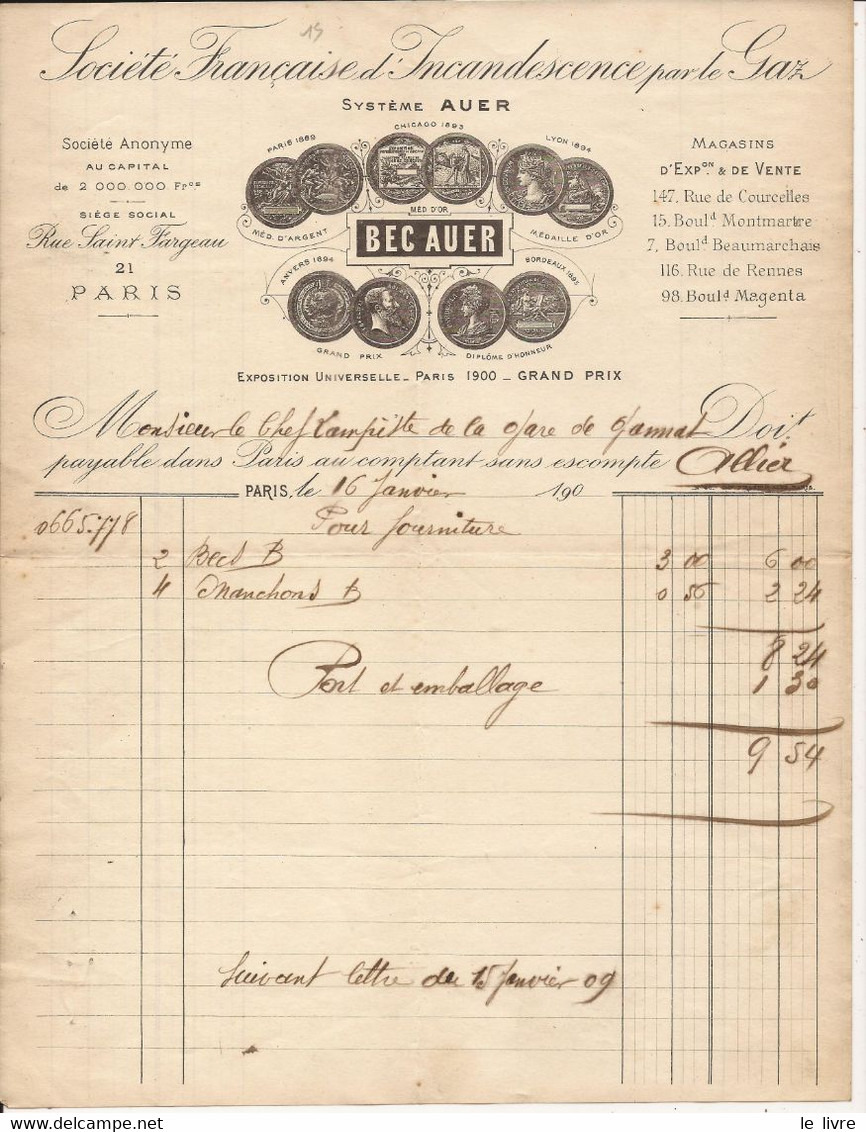 15
Société Française d'Incandescence par le Gaz
SYSTÈME AUER
Société Anonyme
AU CAPITAL
de 2 000.000 Frcs
SIÈGE SOCIAL
Rue Saint Fargeau
21
PARIS
PARIS 1889
CHICAGO 1893
LYON 1894
MÉD. D'ARGENT
MÉD. D'OR
MÉDAILLE D'OR
BEC AUER
ANVERS 1894
BORDEAUX 1895
GRAND PRIX
DIPLÔME D'HONNEUR
EXPOSITION UNIVERSELLE_ PARIS 1900 _ GRAND PRIX
MAGASINS
D'EXPON. & DE VENTE
147, Rue de Courcelles
15, Bould Montmartre
7, Bould Beaumarchais
116, Rue de Rennes
98, Bould Magenta
Monsieur le Chef Lampiste de la Gare de Gannat Doit
payable dans Paris au comptant sans escompte Allier
PARIS, le 16 Janvier 190
0665.778 Pour fourniture
2 Becs B 3 00 6 00
4 Manchons B 0 56 2 24
8 24
Port et emballage 1 30
9 54
Suivant lettre du 15 Janvier 09
le livre